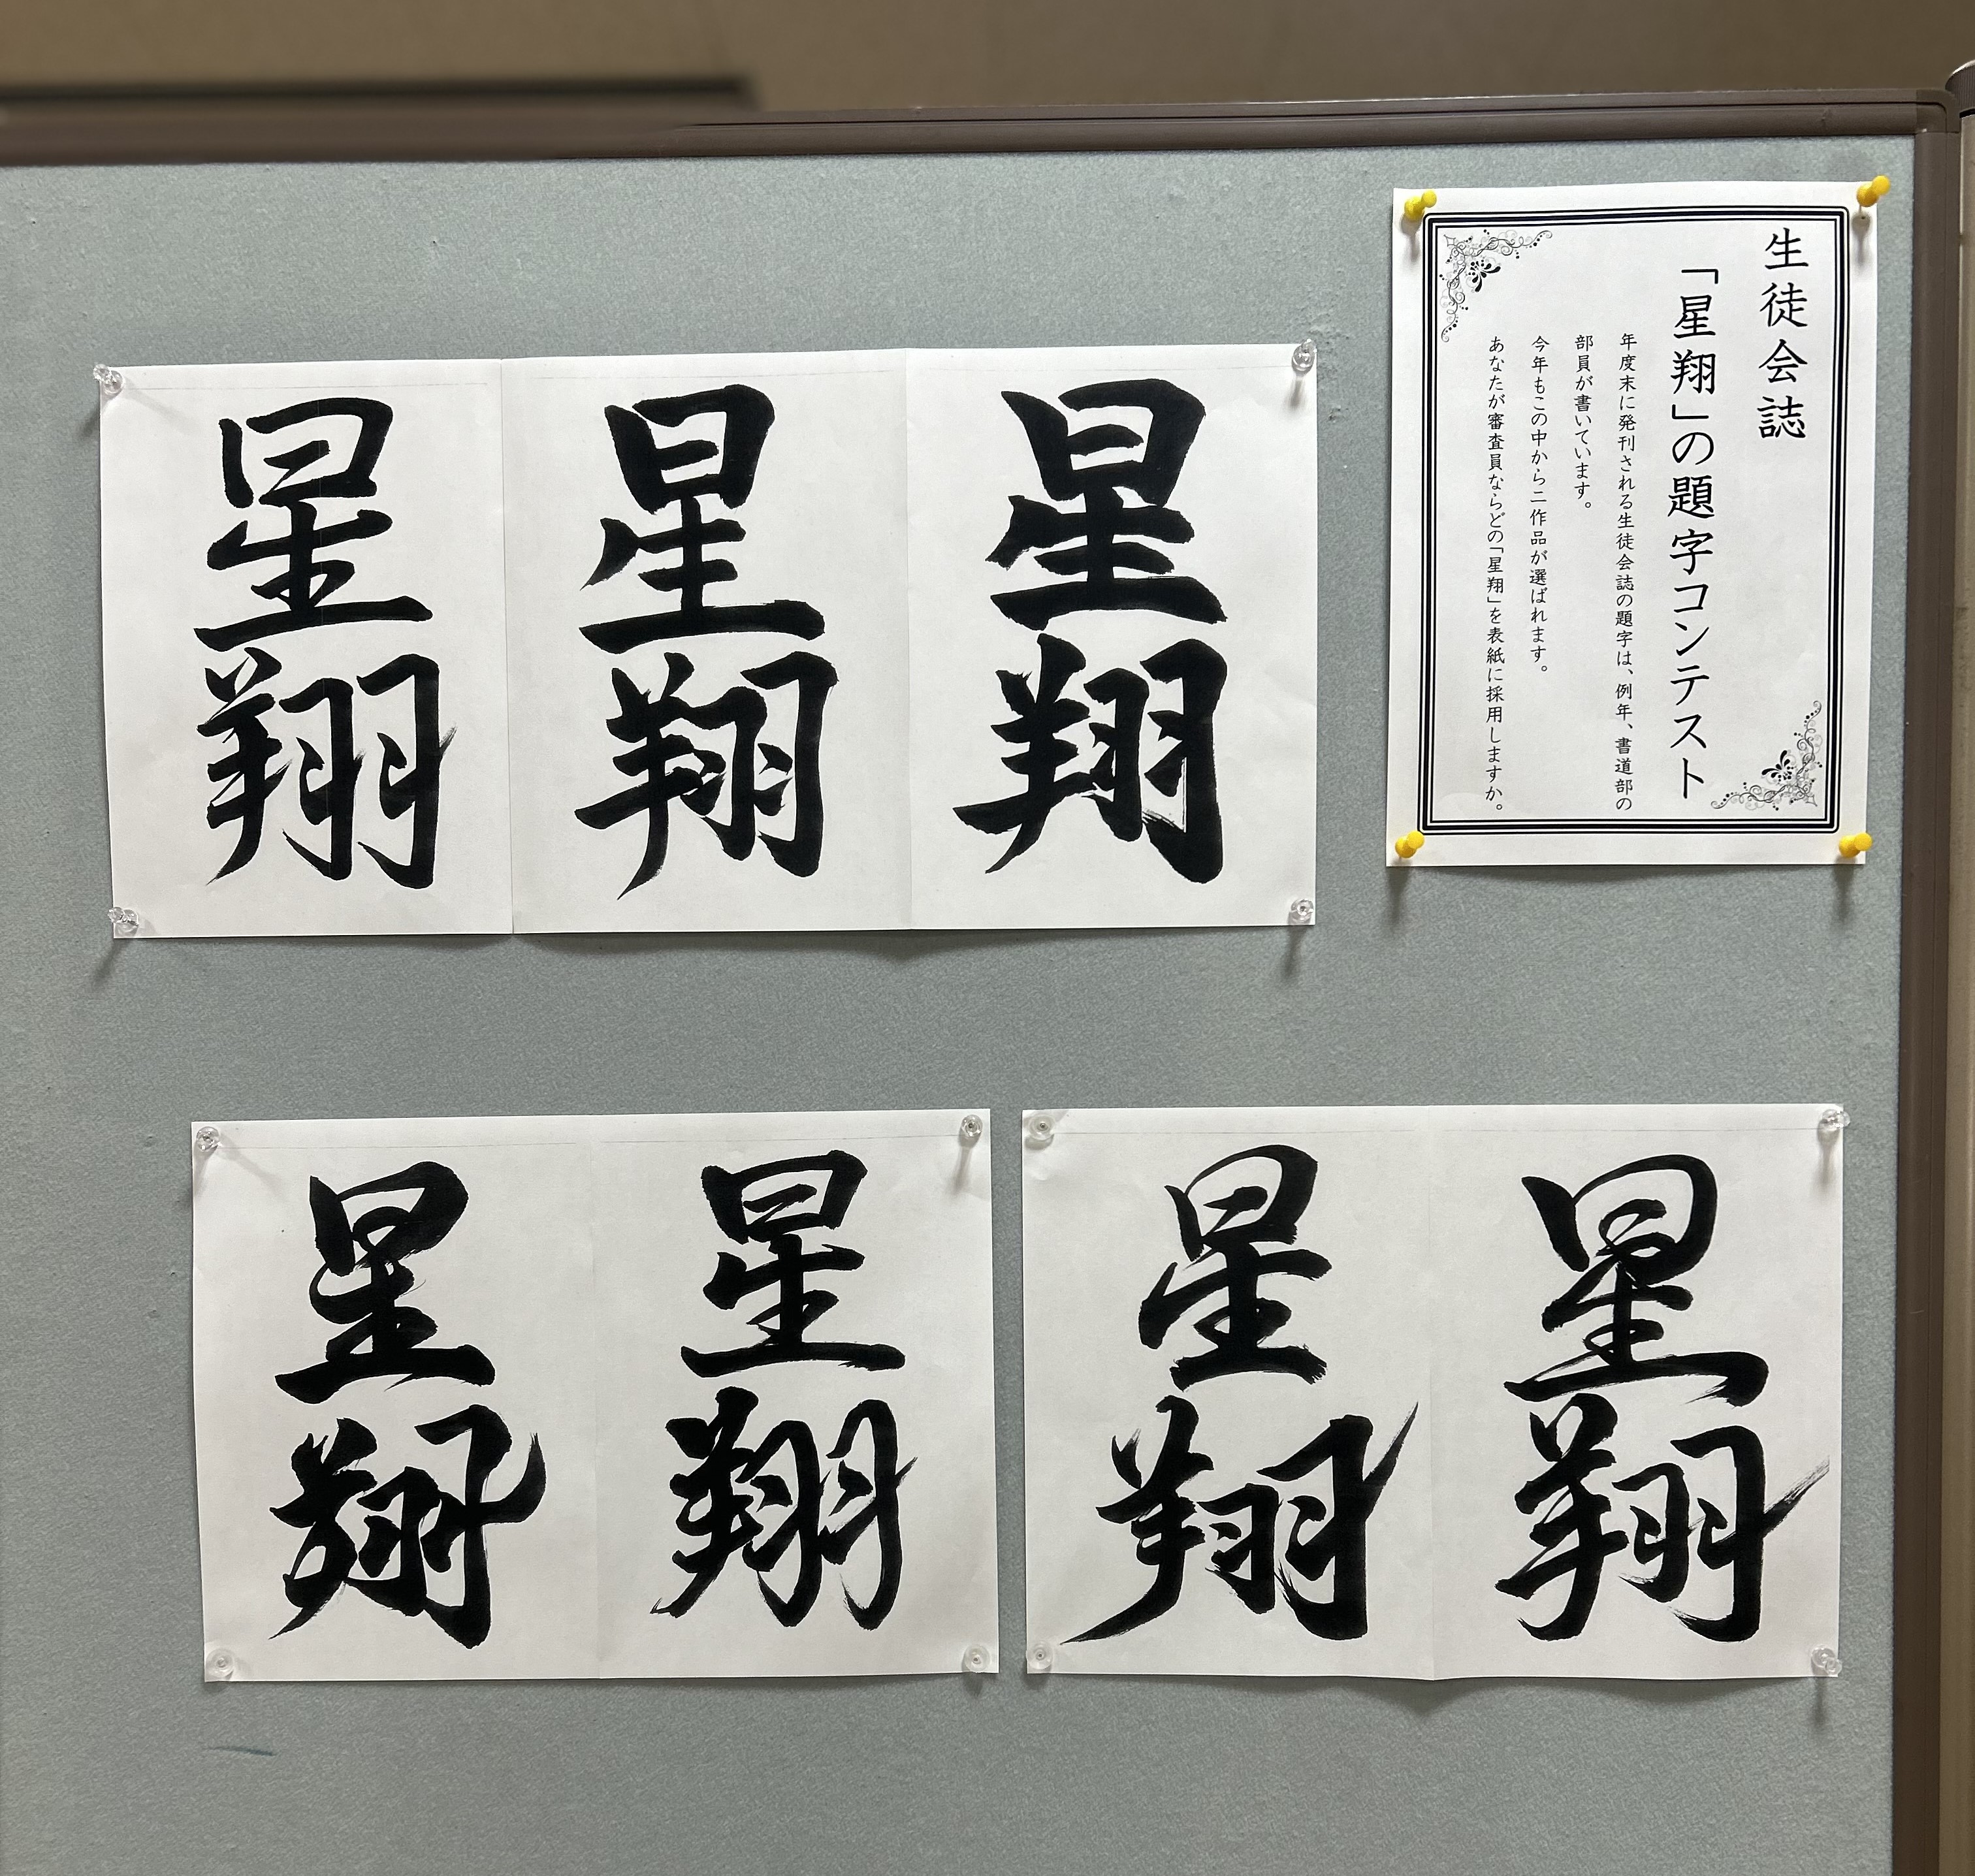 生徒会誌
「星翔」の題字コンテスト
年度末に発刊される生徒会誌の題字は、例年、書道部の
部員が書いています。
今年もこの中から二作品が選ばれます。
あなたが審査員ならどの「星翔」を表紙に採用しますか。
星翔
星翔
星翔
星翔
星翔
星翔
星翔